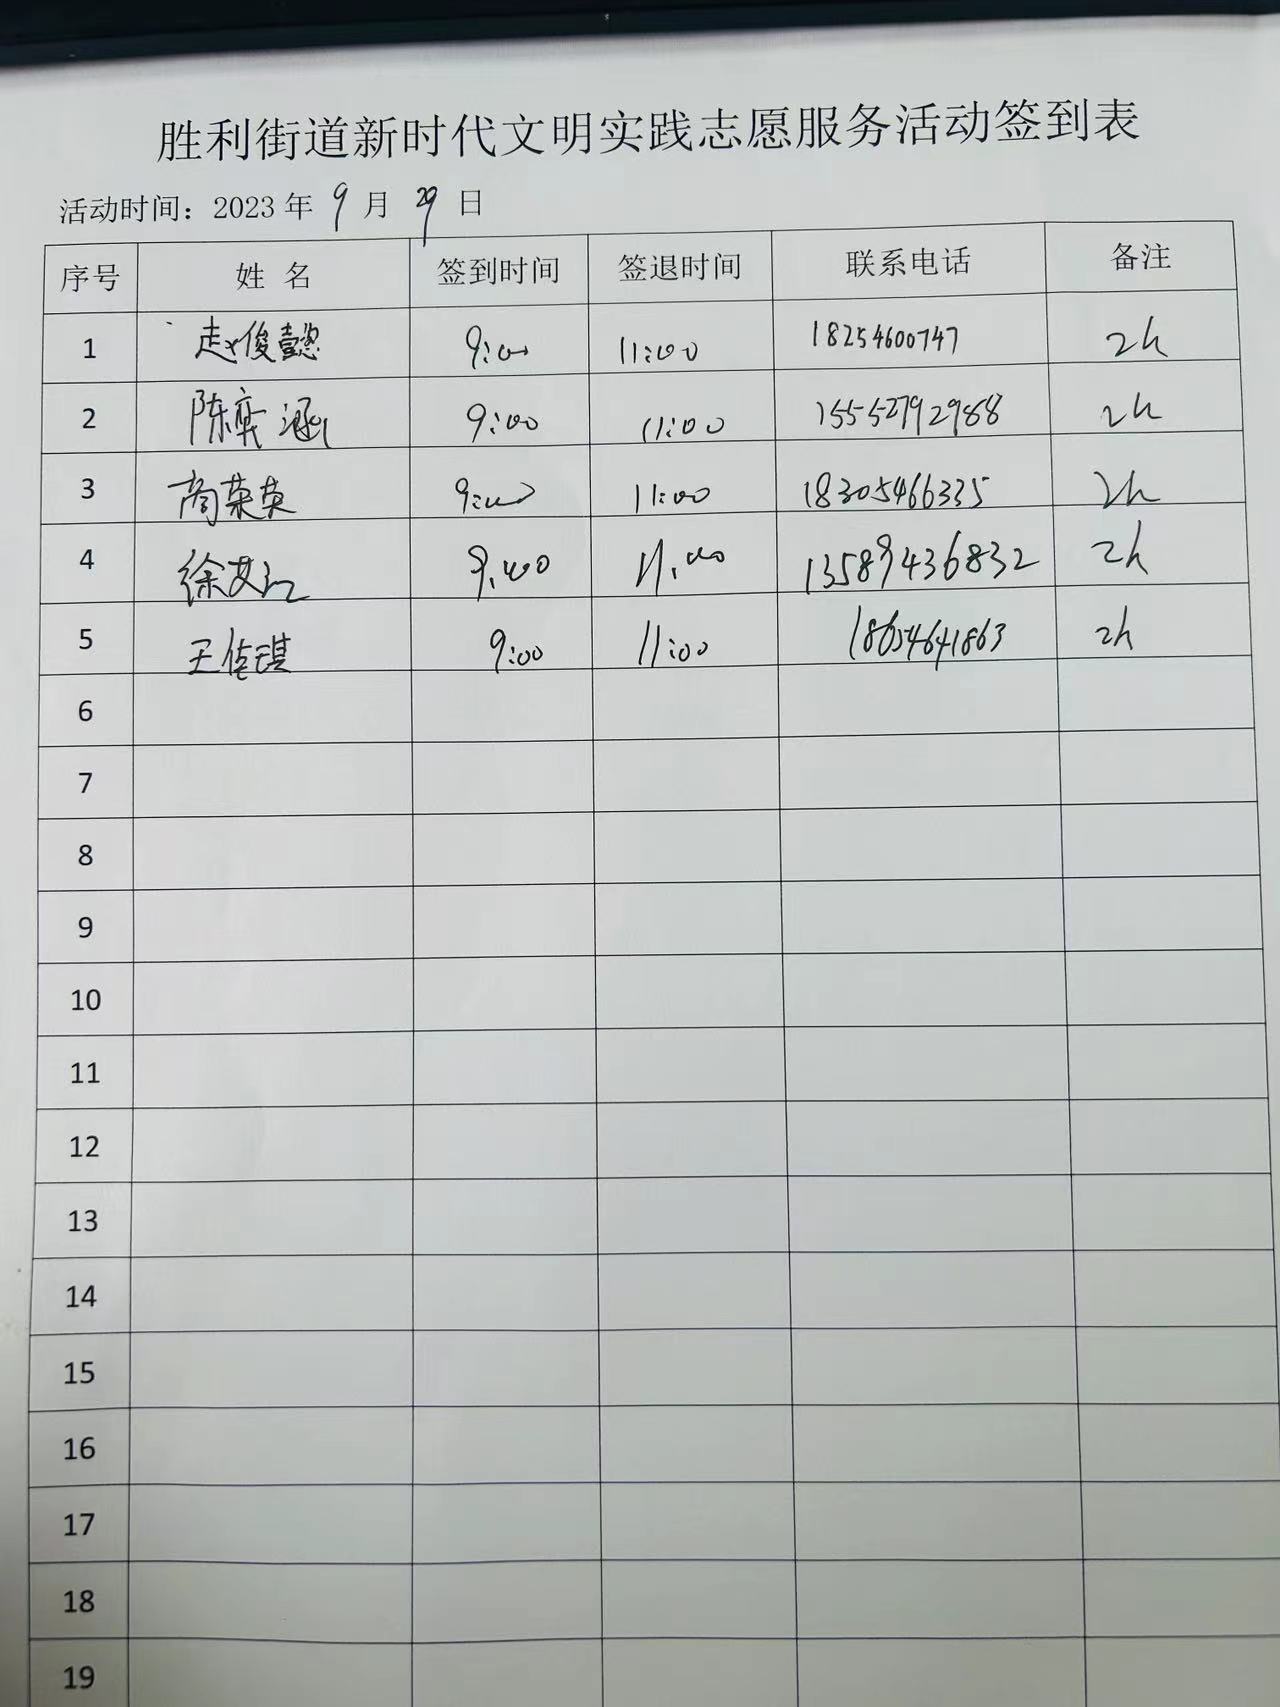 胜利街道新时代文明实践志愿服务活动签到表
活动时间：2023 年 9 月 29 日
序号 姓 名 签到时间 签退时间 联系电话 备注
1 赵俊懿 9:00 11:00 18254600747 2h
2 陈奕涵 9:00 11:00 15552792988 2h
3 商荣英 9:00 11:00 18305466335 2h
4 徐艾江 9:00 11:00 13589436832 2h
5 王佳琪 9:00 11:00 18654641863 2h
6
7
8
9
10
11
12
13
14
15
16
17
18
19